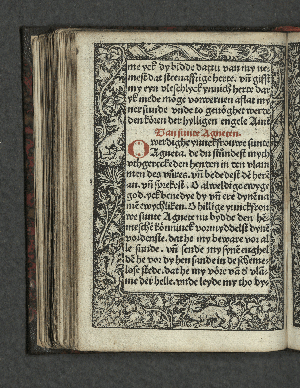 me yck dy bidde dattu van my ne-
mest dat steenafftige herte. vñ gifst
my eyn vleschlyck ynnich herte dar
yk mede möge vorweruen aflat my
ner sunde vnde to genöghet werde
den kören der hylligen engele Amē
Van sunte Agneten.
O werdighe yunckfrouwe sunte
Agneta. de du stündest myth
vthgereckeden henden in den vlam
men des vüres. vñ bededest dē herē
an. vñ sprekest. O alweldige ewyge
god. yck benedye dy vñ ere dynē na
mē ewychliken. O hillige yunckfrou
we sunte Agnete nu bydde den he-
melschē könninck vormyddelst dynē
vordenste. dat he my beware vor al
le sunde. vñ sende my synē enghel
dē he vor dy hen sande in de schemē
lose stede. dat he my vöre vā d' vlāme
me der helle. vnde leyde my tho dy-